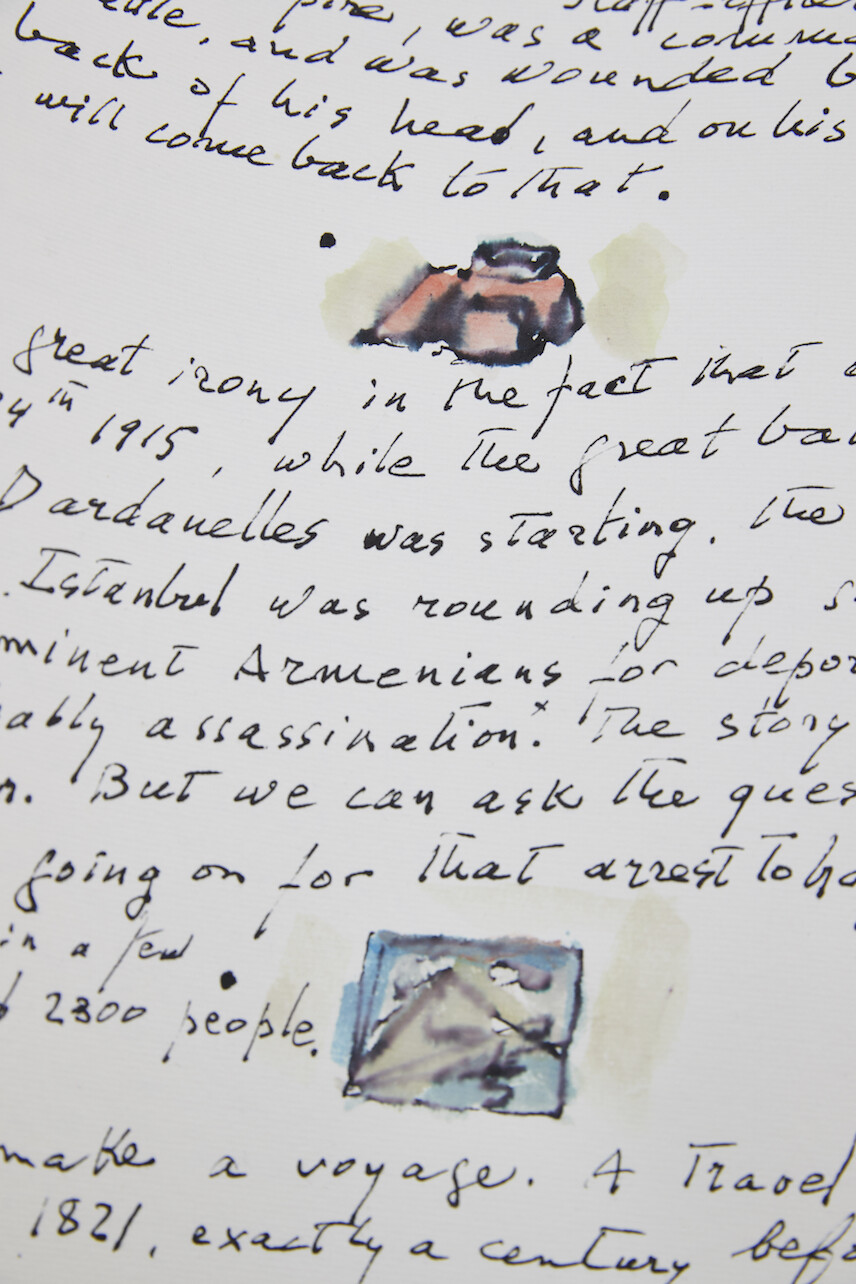 was a
back and was wounded
of his head, and on his
will come back to that.
great irony in the fact that
24th 1915, while the great
Dardanelles was starting. The
Istanbul was rounding up
Armenians for
assassination.x The story
But we can ask the
going on for that arrest to
in a few
2300 people.
make a voyage. A Travel
1821, exactly a century